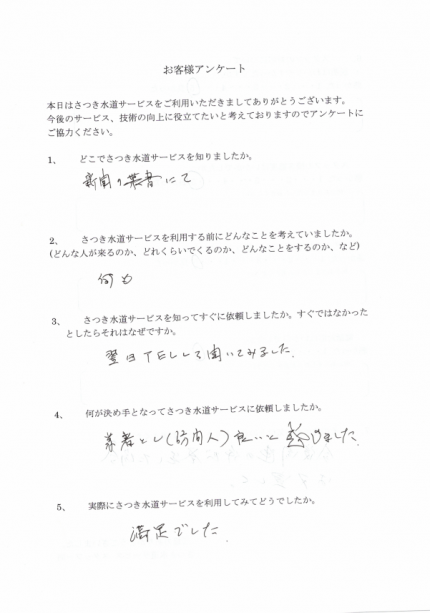 お客様アンケート
本日はさつき水道サービスをご利用いただきましてありがとうございます。
今後のサービス、技術の向上に役立てたいと考えておりますのでアンケートに
ご協力ください。
1、 どこでさつき水道サービスを知りましたか。
新聞の
にて
2、 さつき水道サービスを利用する前にどんなことを考えていましたか。
(どんな人が来るのか、どれくらいでくるのか、どんなことをするのか、など)
何も
3、 さつき水道サービスを知ってすぐに依頼しましたか。すぐではなかった
としたらそれはなぜですか。
翌日TELして聞いてみました.
4、 何が決め手となってさつき水道サービスに依頼しましたか。
良いと感じました.
5、 実際にさつき水道サービスを利用してみてどうでしたか。
満足でした.